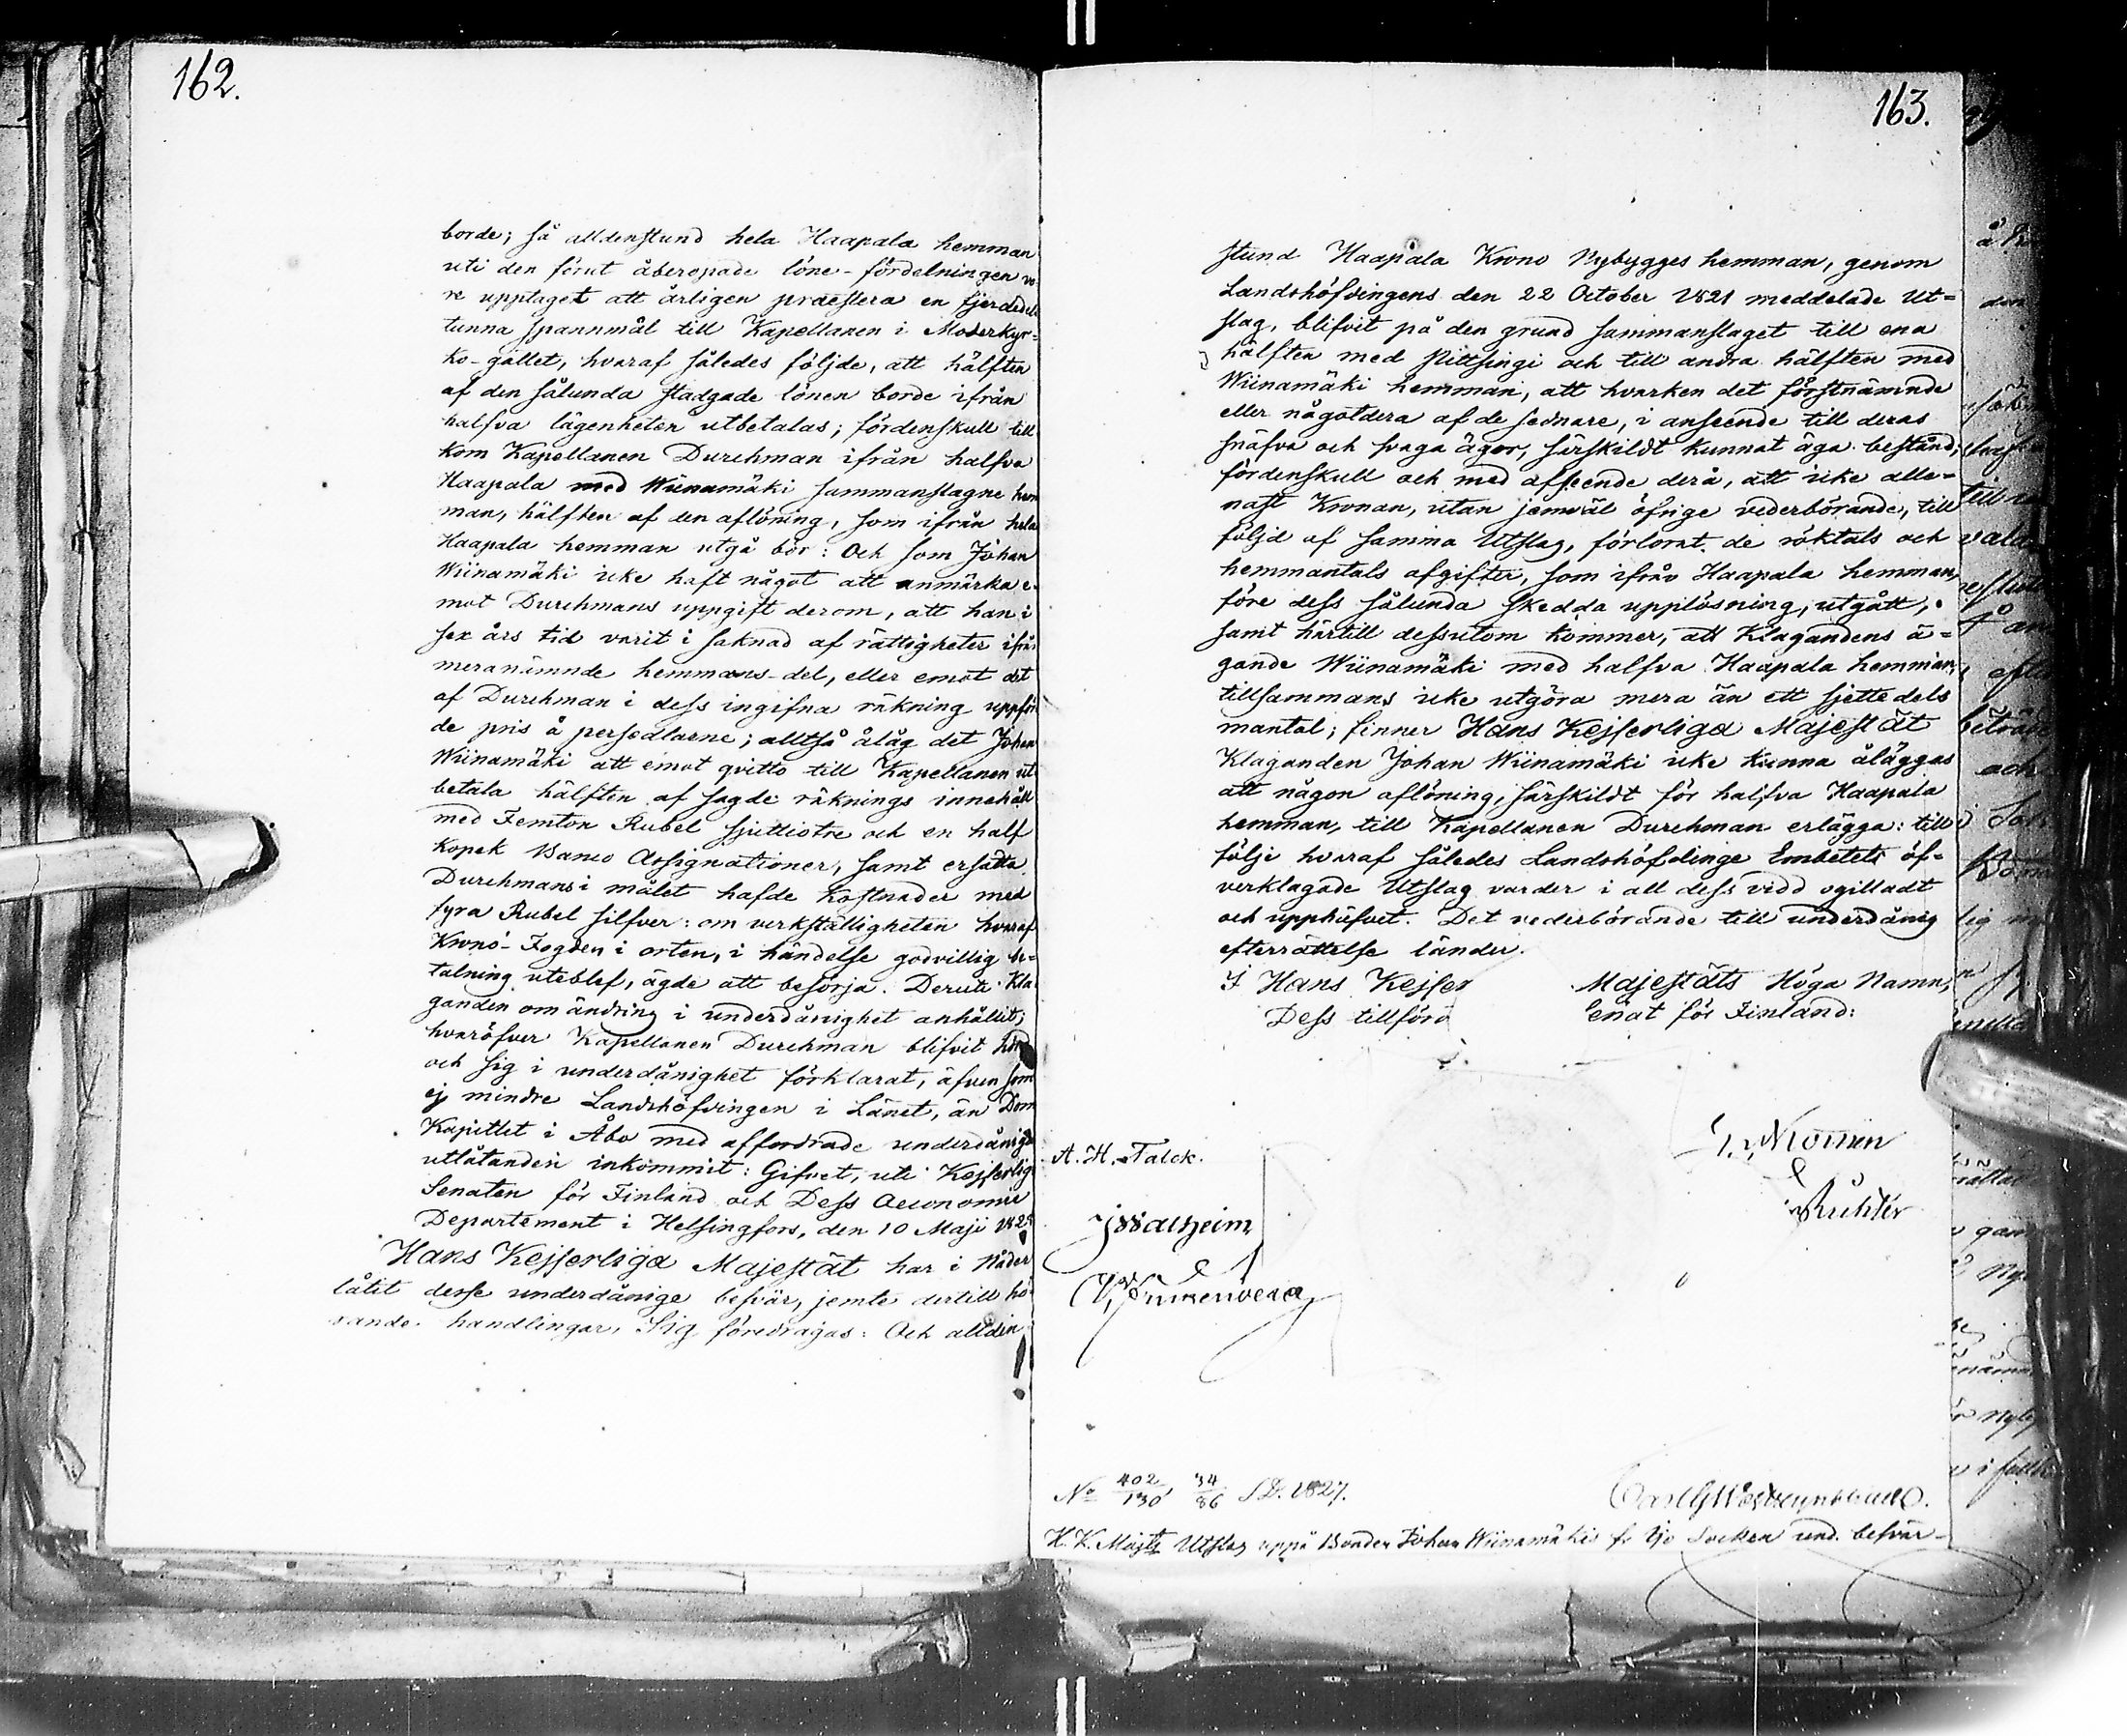 162.
borde; så alldenstund hela Haapala hemman
uti den förut åberopade löne-fördelningen vo-
re upptaget att årligen præstera en fjerdedels
tunna spannmål till Kapellanen i Moderkyr-
ko-gället, hvaraf således följde, att hälften
af den sålunda stadgade lönen borde ifrån
halfva lägenheten utbetalas; fördenskull till
kom Kapellanen Durchman ifrån halfva
Haapala med Wiinamäki sammanslagne hem
man, hälften af den aflöning, som ifrån hela
Haapala hemman utgå bör: Och som Johan
Wiinamäki icke haft något att anmärka e-
mot Durchmans uppgift derom, att han i
sex års tid varit i saknad af rättigheter ifrån
meranämnde hemmans-del, eller emot det
af Durchman i dess ingifna räkning uppför
de pris å persedlarne; alltså ålåg det Johan
Wiinamäki att emot qvitto till Kapellanen ut
betala hälften af sagde räknings innehåll
med Femton Rubel sjuttiotre och en half
Kopek Banco Assignationer, samt ersätta
Durchmans i målet hafde kostnader med
fyra Rubel silfver: om verkställigheten hvaraf
Krono-Fogden i orten, i händelse godvillig be-
talning uteblef, ägde att besörja. Deruti Kla
ganden om ändring i underdånighet anhållit;
hvaröfver Kapellanen Durchman blifvit hörd
och sig i underdånighet förklarat, äfven som
ej mindre Landshöfdingen i Länet, än Dom
Kapitlet i Åbo med affordrade underdåniga
utlåtanden inkommit: Gifvet, uti Kejserlige
Senaten för Finland och Dess Oeconomie
Departement i Helsingfors, den 10 Maji 182
Hans Kejserliga Majestät har i Nåder
låtit desse underdånige besvär, jemte dertill hö
rande handlingar, Sig föredragas: Och allden
163.
stund Haapala Krono Nybygges hemman, genom
Landshöfdingens den 22 October 1821 meddelade Ut-
slag, blifvit på den grund sammanslaget till ena
hälften med Pittsingi och till andra hälften med
Wiinamäki hemman, att hvarken det förstnämnde
eller någotdera af de sednare, i anseende till deras
snäfva och svaga ägor, särskildt kunnat äga bestånd;
fördenskull och med afseende derå, att icke alle-
nast Kronan, utan jemväl öfrige vederbörande, till
följd af samma Utslag, förlorat de röktals och
hemmantals afgifter, som ifrån Haapala hemman,
före dess sålunda skedda upplösning, utgått,
samt härtill dessutom kommer, att Klagandens ä-
gande Wiinamäki med halfva Haapala hemman,
tillsammans icke utgöra mera än ett sjettedels
mantal; finner Hans Kejserliga Majestät
Klaganden Johan Wiinamäki icke kunna åläggas
att någon aflöning, särskildt för halfva Haapala
hemman, till Kapellanen Durchman erlägga: till
följe hvaraf således Landshöfdinge Embetets öf-
verklagade Utslag varder i all dess vidd ogilladt
och upphäfvet. Det vederbörande till underdånig
efterrättelse länder.
I Hans Kejser Majestäts Höga Namn,
Dess tillförd Senat för Finland:
A. H. Falck.
J Walheim
Richter
No 402/130, 34/86 S.D. 1827.
H. K. Majts Utslag uppå Bonden Johan Wiinamäkis fr Ijo Socken und. besvär-